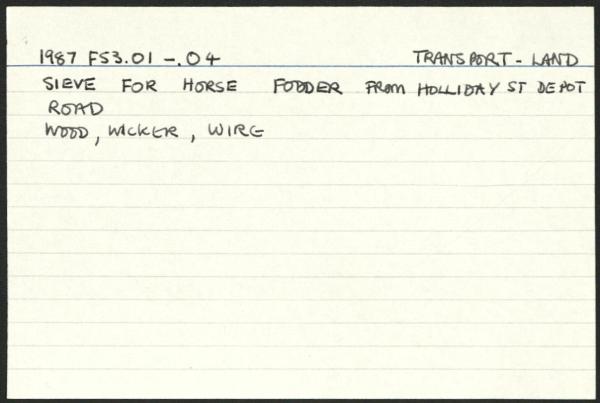 1987 FS3.01 -.04 TRANSPORT - LAND
SIEVE FOR HORSE FODDER FROM HOLLIDAY ST DEPOT
ROAD
WOOD, WICKER, WIRE